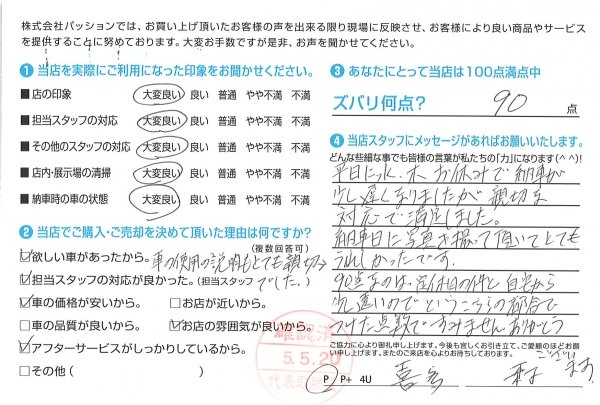 株式会社パッションでは、お買い上げ頂いたお客様の声を出来る限り現場に反映させ、お客様により良い商品やサービス
を提供することに努めております。大変お手数ですが是非、お声を聞かせてください。
1 当店を実際にご利用になった印象をお聞かせください。
■店の印象 大変良い 良い 普通 やや不満 不満
■担当スタッフの対応 大変良い 良い 普通 やや不満 不満
■その他のスタッフの対応 大変良い 良い 普通 やや不満 不満
■店内・展示場の清掃 大変良い 良い 普通 やや不満 不満
■納車時の車の状態 大変良い 良い 普通 やや不満 不満
2 当店でご購入・ご売却を決めて頂いた理由は何ですか?
(複数回答可)
☑欲しい車があったから。 車の使用の説明もとても親切
☑担当スタッフの対応が良かった。(担当スタッフ でした。)
☑車の価格が安いから。 □お店が近いから。
□車の品質が良いから。 ☑お店の雰囲気が良いから。
☑アフターサービスがしっかりしているから。
□その他( )
確認済
5.5.20
代表取締
3 あなたにとって当店は100点満点中
ズバリ何点? 90 点
4 当店スタッフにメッセージがあればお願いいたします。
どんな些細な事でも皆様の言葉が私たちの「力」になります(^^)!
平日に水、木 お休みで 納車が
少し遅くなりましたが 親切な
対応で満足しました。
納車日に写真を撮って頂いてとても
うれしかったです。
90点なのは、定休日の件と自宅から
少し遠いのでというこちらの都合で
つけた点数ですみません ありがとう
ございます
ご協力に心より御礼申し上げます。今後も宜しくお引き立て、ご愛顧のほどお願
い申し上げます。またのご来店を心よりお待ちしております。
P P+ 4U 喜多 村